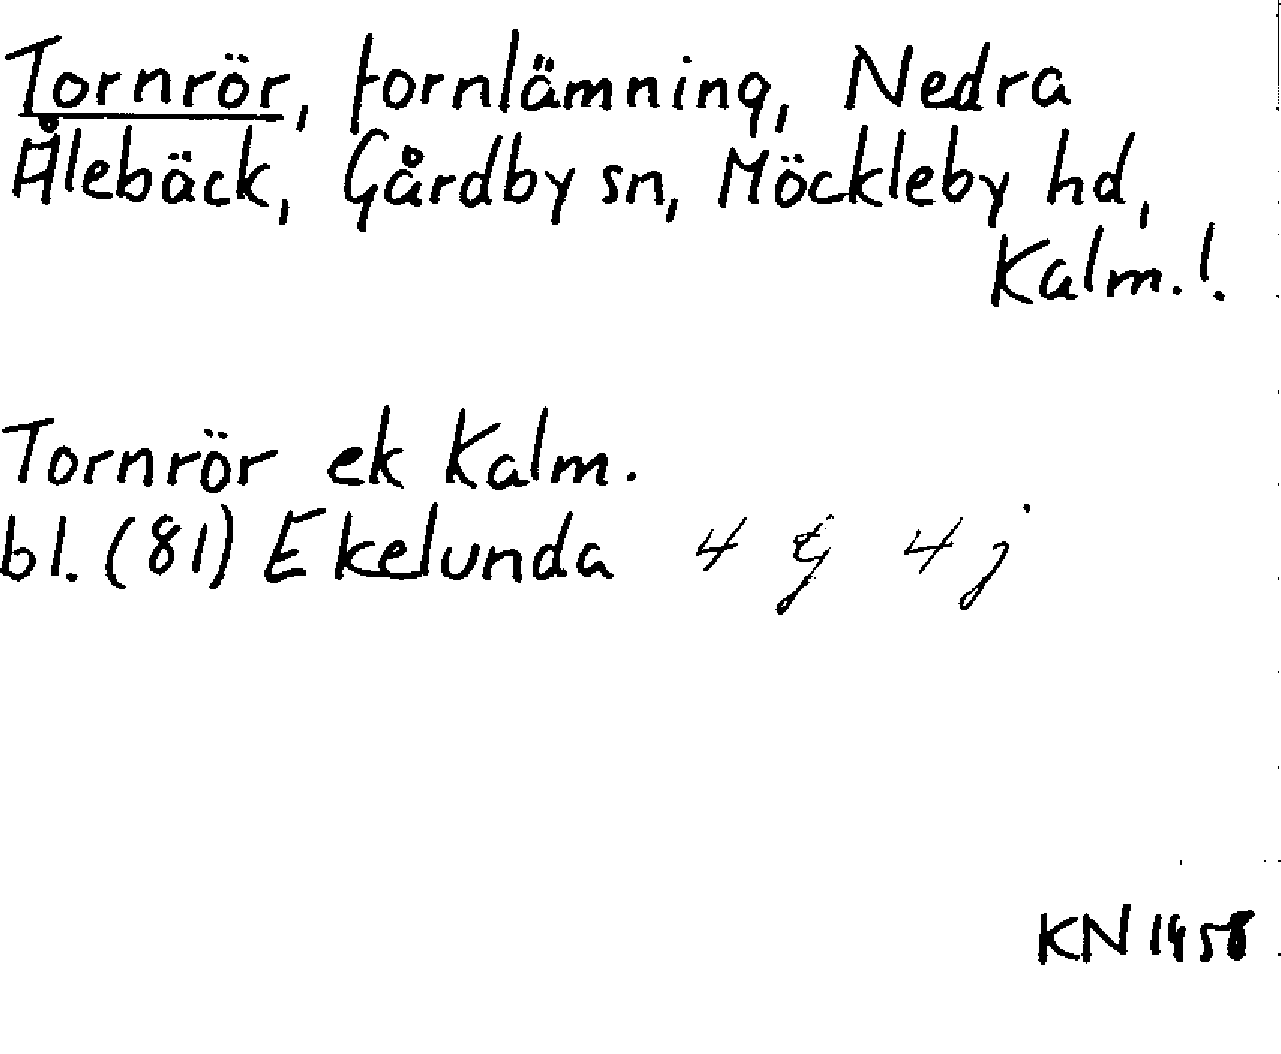 Tornrör, fornlämning, Nedra
Ålebäck, Gårdby sn, Möckleby hd,
Kalm.!.
Tornrör ek Kalm.
bl. (81) Ekelunda 4 g 4 j
KN 1458